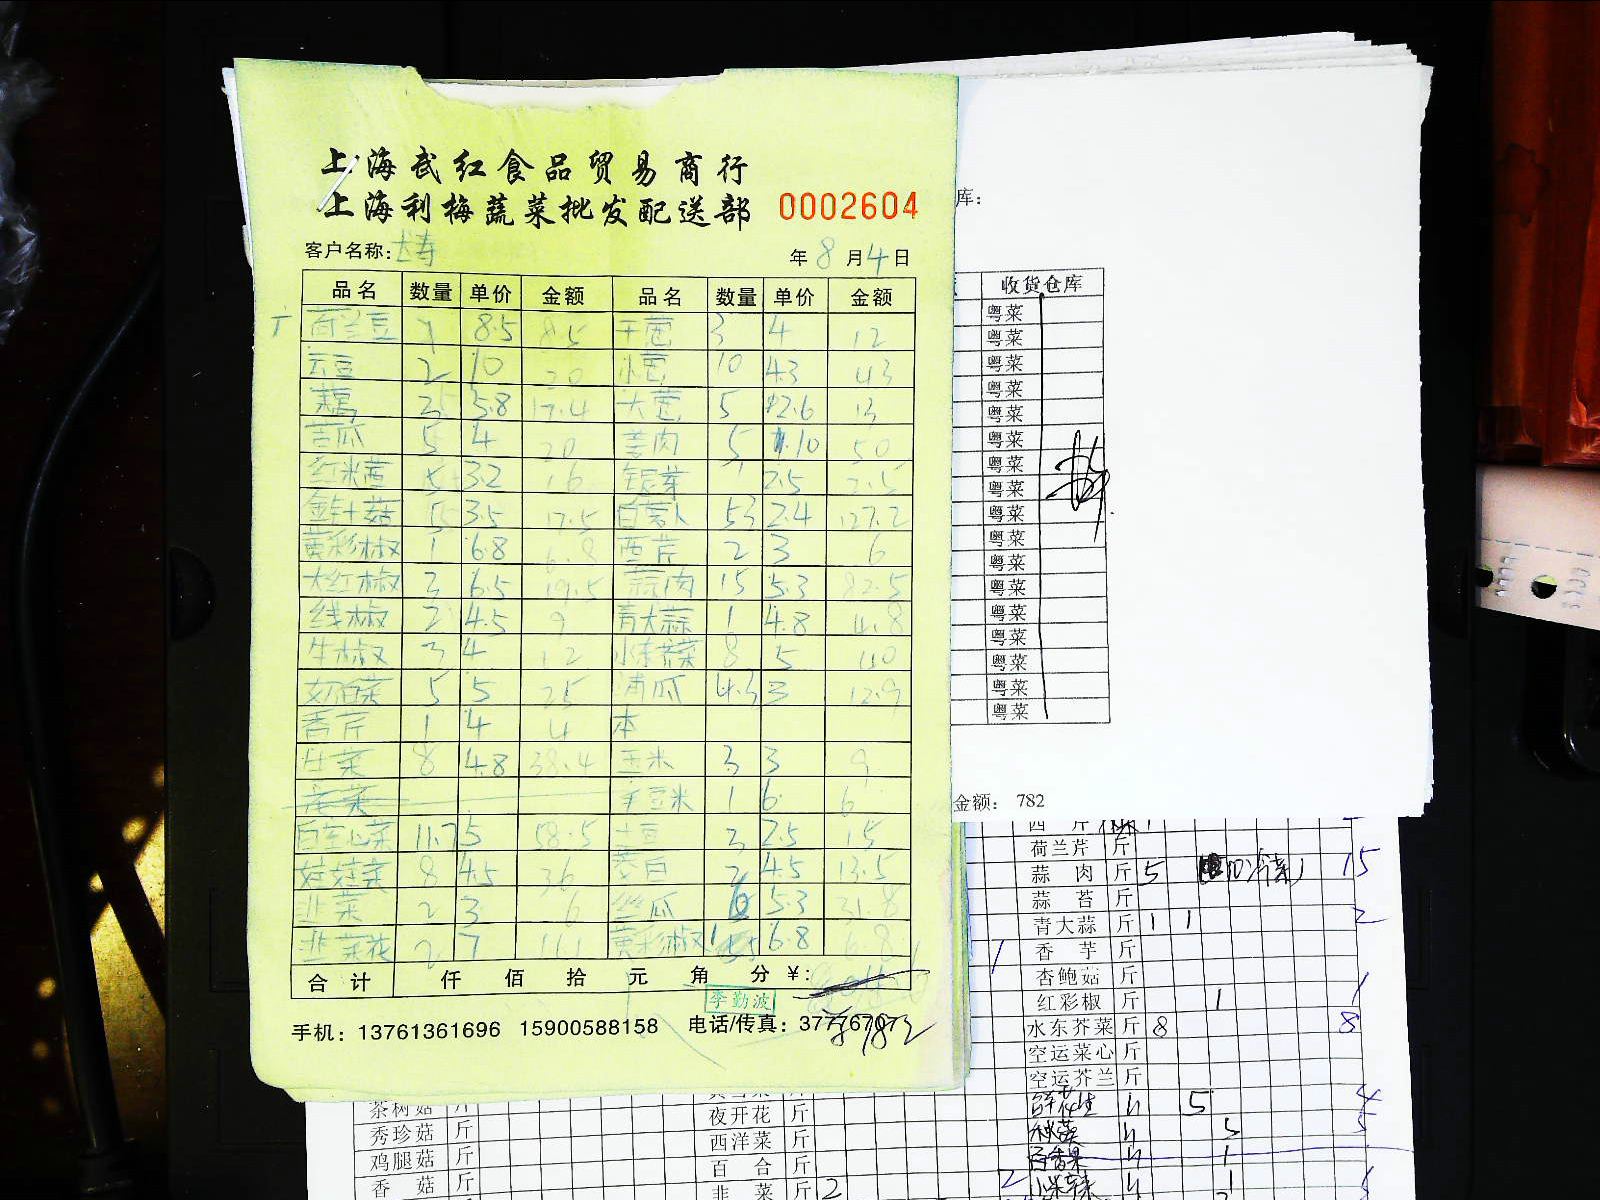 上海武红食品贸易商行
上海利梅蔬菜批发配送部 0002604
客户名称: 年 8 月 4 日
品名 数量 单价 金额 品名 数量 单价 金额
荷兰豆 1 8.5 8.5 干葱 3 4 12
云豆 2 10 20 小葱 10 4.3 43
3 5.8 17.4 大葱 5 2.6 13
苦瓜 5 4 20 姜肉 5 10 50
红米苋 5 3.2 16 银芽 1 2.5 2.5
金针菇 5 3.5 17.5 白萝卜 53 2.4 127.2
黄彩椒 1 6.8 6.8 西芹 2 3 6
大红椒 3 6.5 19.5 蒜肉 15 5.3 82.5
线椒 2 4.5 9 青大蒜 1 4.8 4.8
牛椒 3 4 12 水东芥菜 8 5
奶白菜 5 5 25 浦瓜 4.3 3 12.9
香芹 1 4 4 本
生菜 8 4.8 38.4 玉米 3 3 9
毛豆米 1 6 6
白空心菜 11.7 5 58.5 土豆 2.5 15
娃娃菜 8 4.5 36 茭白 4.5 13.5
韭菜 2 3 6 丝瓜 6 5.3 31.8
韭菜花 2 7 黄彩椒 1 6.8 6.8
合计 仟 佰 拾 元 角 分 ¥:
李勤波
手机: 13761361696 15900588158 电话/传真:
¥782
库:
收货仓库
粤菜
粤菜
粤菜
粤菜
粤菜
粤菜
粤菜
粤菜
粤菜
粤菜
粤菜
粤菜
粤菜
粤菜
粤菜
粤菜
粤菜
金额: 782
西芹
荷兰芹 斤
蒜肉 斤 5 15
蒜苔 斤
青大蒜 斤 1 1 2
香芋 斤
杏鲍菇 斤
红彩椒 斤 1 1
水东芥菜 斤 8 8
空运菜心 斤
空运芥兰 斤
5
5
百香果 1
小米辣 1
茶树菇 斤
秀珍菇 斤
鸡腿菇 斤
香菇 斤
夜开花 斤
西洋菜 斤
百合 斤
韭菜 斤 2